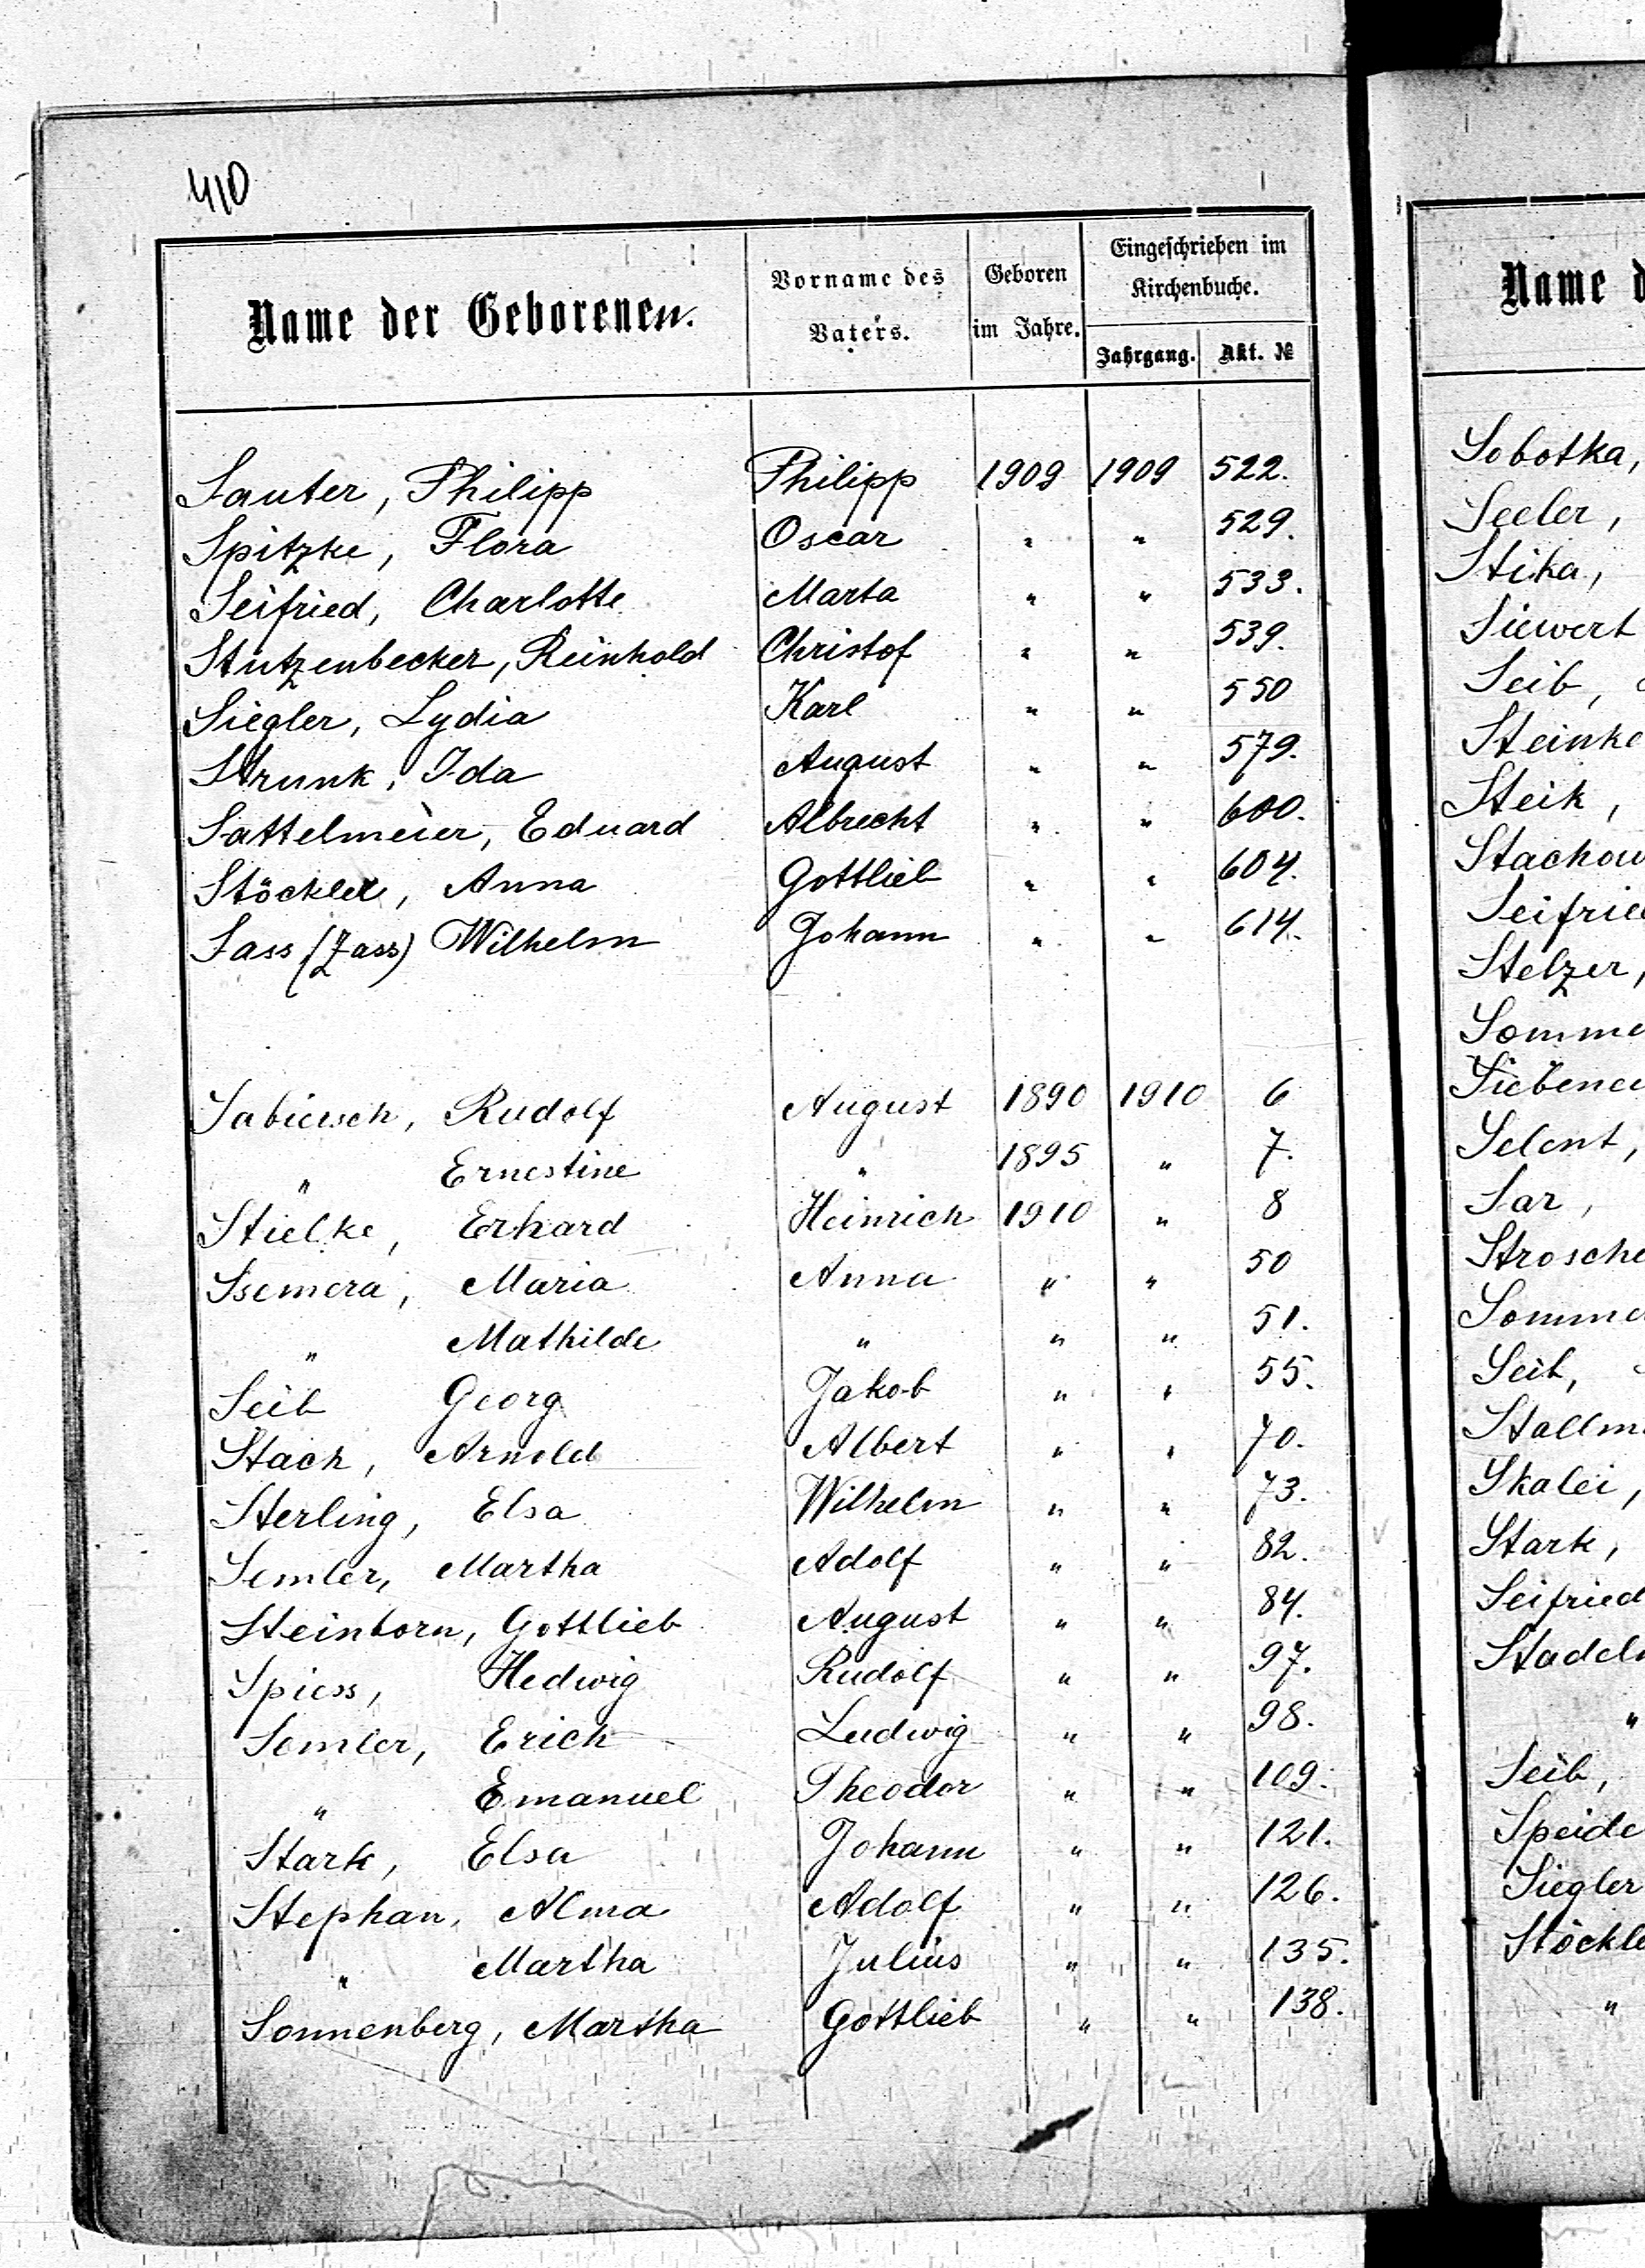 410
Name der Geborenen.
Vorname des Vaters.
Geboren im Jahre.
Eingeschrieben im Kirchenbuche.
Jahrgang. Akt. №
Sauter, Philipp Philipp 1909 1909 522.
Spitzke, Flora Oscar " " 529.
Seifried, Charlotte Marta " " 533.
Stutzenbecker, Reinhold Christof " " 539.
Siegler, Lydia Karl " " 550
Strunk, Ida August " " 579.
Sattelmeier, Eduard Albrecht " " 600.
Stöckler, Anna Gottlieb " " 604.
Sass (Zass) Wilhelm Johann " " 614.
Sabiensch, Rudolf August 1890 1910 6
" Ernestine " 1895 " 7.
Stielke, Erhard Heinrich 1910 " 8
Ssemera, Maria Anna " " 50
" Mathilde " " " 51.
Seib Georg Jakob " " 55.
Stach, Arnold Albert " " 70.
Sterling, Elsa Wilhelm " " 73.
Semler, Martha Adolf " " 82.
Steinborn, Gottlieb August " " 84.
Spiess, Hedwig Rudolf " " 97.
Semler, Erich Ludwig " " 98.
" Emanuel Theodor " " 109.
Stark, Elsa Johann " " 121.
Stephan, Alma Adolf " " 126.
" Martha Julius " " 135.
Sonnenberg, Martha Gottlieb " " 138.
Name d
Sobotka,
Seeler,
Stika,
Siewert
Seib,
Steinke
Steik,
Stachow
Seifried
Stelzer,
Somme
Siebenei
Selent,
Sar,
Strosche
Somme
Seib,
Stallm
Skalei,
Stark,
Seifried
Stadel
"
Seib,
Speide
Siegler
Stöckle
"